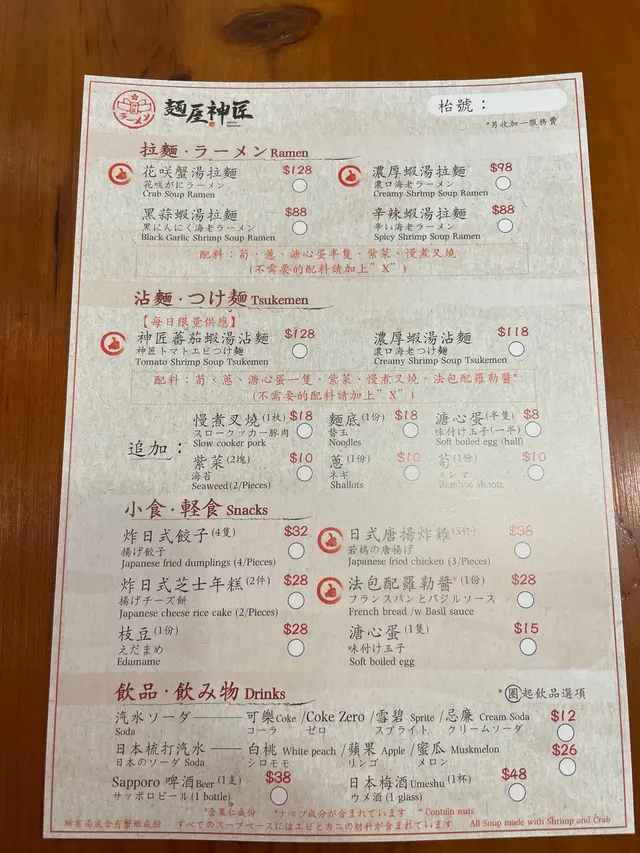 ラーメン
麺屋神匠
枱號：
*另收加一服務費
拉麵・ラーメン Ramen
花咲蟹湯拉麵 $128
花咲がにラーメン
Crab Soup Ramen
濃厚蝦湯拉麵 $98
濃口海老ラーメン
Creamy Shrimp Soup Ramen
黑蒜蝦湯拉麵 $88
黒にんにく海老ラーメン
Black Garlic Shrimp Soup Ramen
辛辣蝦湯拉麵 $88
辛い海老ラーメン
Spicy Shrimp Soup Ramen
配料：荀、蔥、溏心蛋半隻、紫菜、慢煮叉燒
(不需要的配料請加上”X”)
沾麵・つけ麵 Tsukemen
【每日限量供應】
神匠蕃茄蝦湯沾麵 $128
神匠トマトエビつけ麵
Tomato Shrimp Soup Tsukemen
濃厚蝦湯沾麵 $118
濃口海老つけ麵
Creamy Shrimp Soup Tsukemen
配料：荀、蔥、溏心蛋一隻、紫菜、慢煮叉燒、法包配羅勒醬*
(不需要的配料請加上”X”)
追加：
慢煮叉燒(1枚) $18
スロークッカー豚肉
Slow cooker pork
麵底(1份) $18
替玉
Noodles
溏心蛋(半隻) $8
味付け玉子(一半)
Soft boiled egg (half)
紫菜(2塊) $10
海苔
Seaweed (2/Pieces)
蔥(1份) $10
ネギ
Shallots
荀(1份) $10
メンマ
Bamboo shoots
小食・軽食 Snacks
炸日式餃子(4隻) $32
揚げ餃子
Japanese fried dumplings (4/Pieces)
日式唐揚炸雞(3件) $38
若鶏の唐揚げ
Japanese fried chicken (3/Pieces)
炸日式芝士年糕(2件) $28
揚げチーズ餅
Japanese cheese rice cake (2/Pieces)
法包配羅勒醬*(1份) $28
フランスパンとバジルソース
French bread /w Basil sauce
枝豆(1份) $28
えだまめ
Edamame
溏心蛋(1隻) $15
味付け子
Soft boiled egg
飲品・飲み物 Drinks
*圈起飲品選項
汽水ソーダ——可樂Coke /Coke Zero /雪碧 Sprite /忌廉 Cream Soda $12
Soda コーラ ゼロ スプライト クリームソーダ
日本梳打汽水——白桃 White peach /蘋果 Apple /蜜瓜 Muskmelon $26
日本のソーダ Soda シロモモ リンゴ メロン
Sapporo 啤酒 Beer (1支) $38
サッポロビール (1 bottle)
日本梅酒 Umeshu (1杯) $48
ウメ酒 (1 glass)
*含果仁成份 *ナッツ成分が含まれています * Contain nuts
所有湯底含有蟹蝦成份 すべてのスープベースにはエビとカニの材料が含まれています All Soup made with Shrimp and Crab